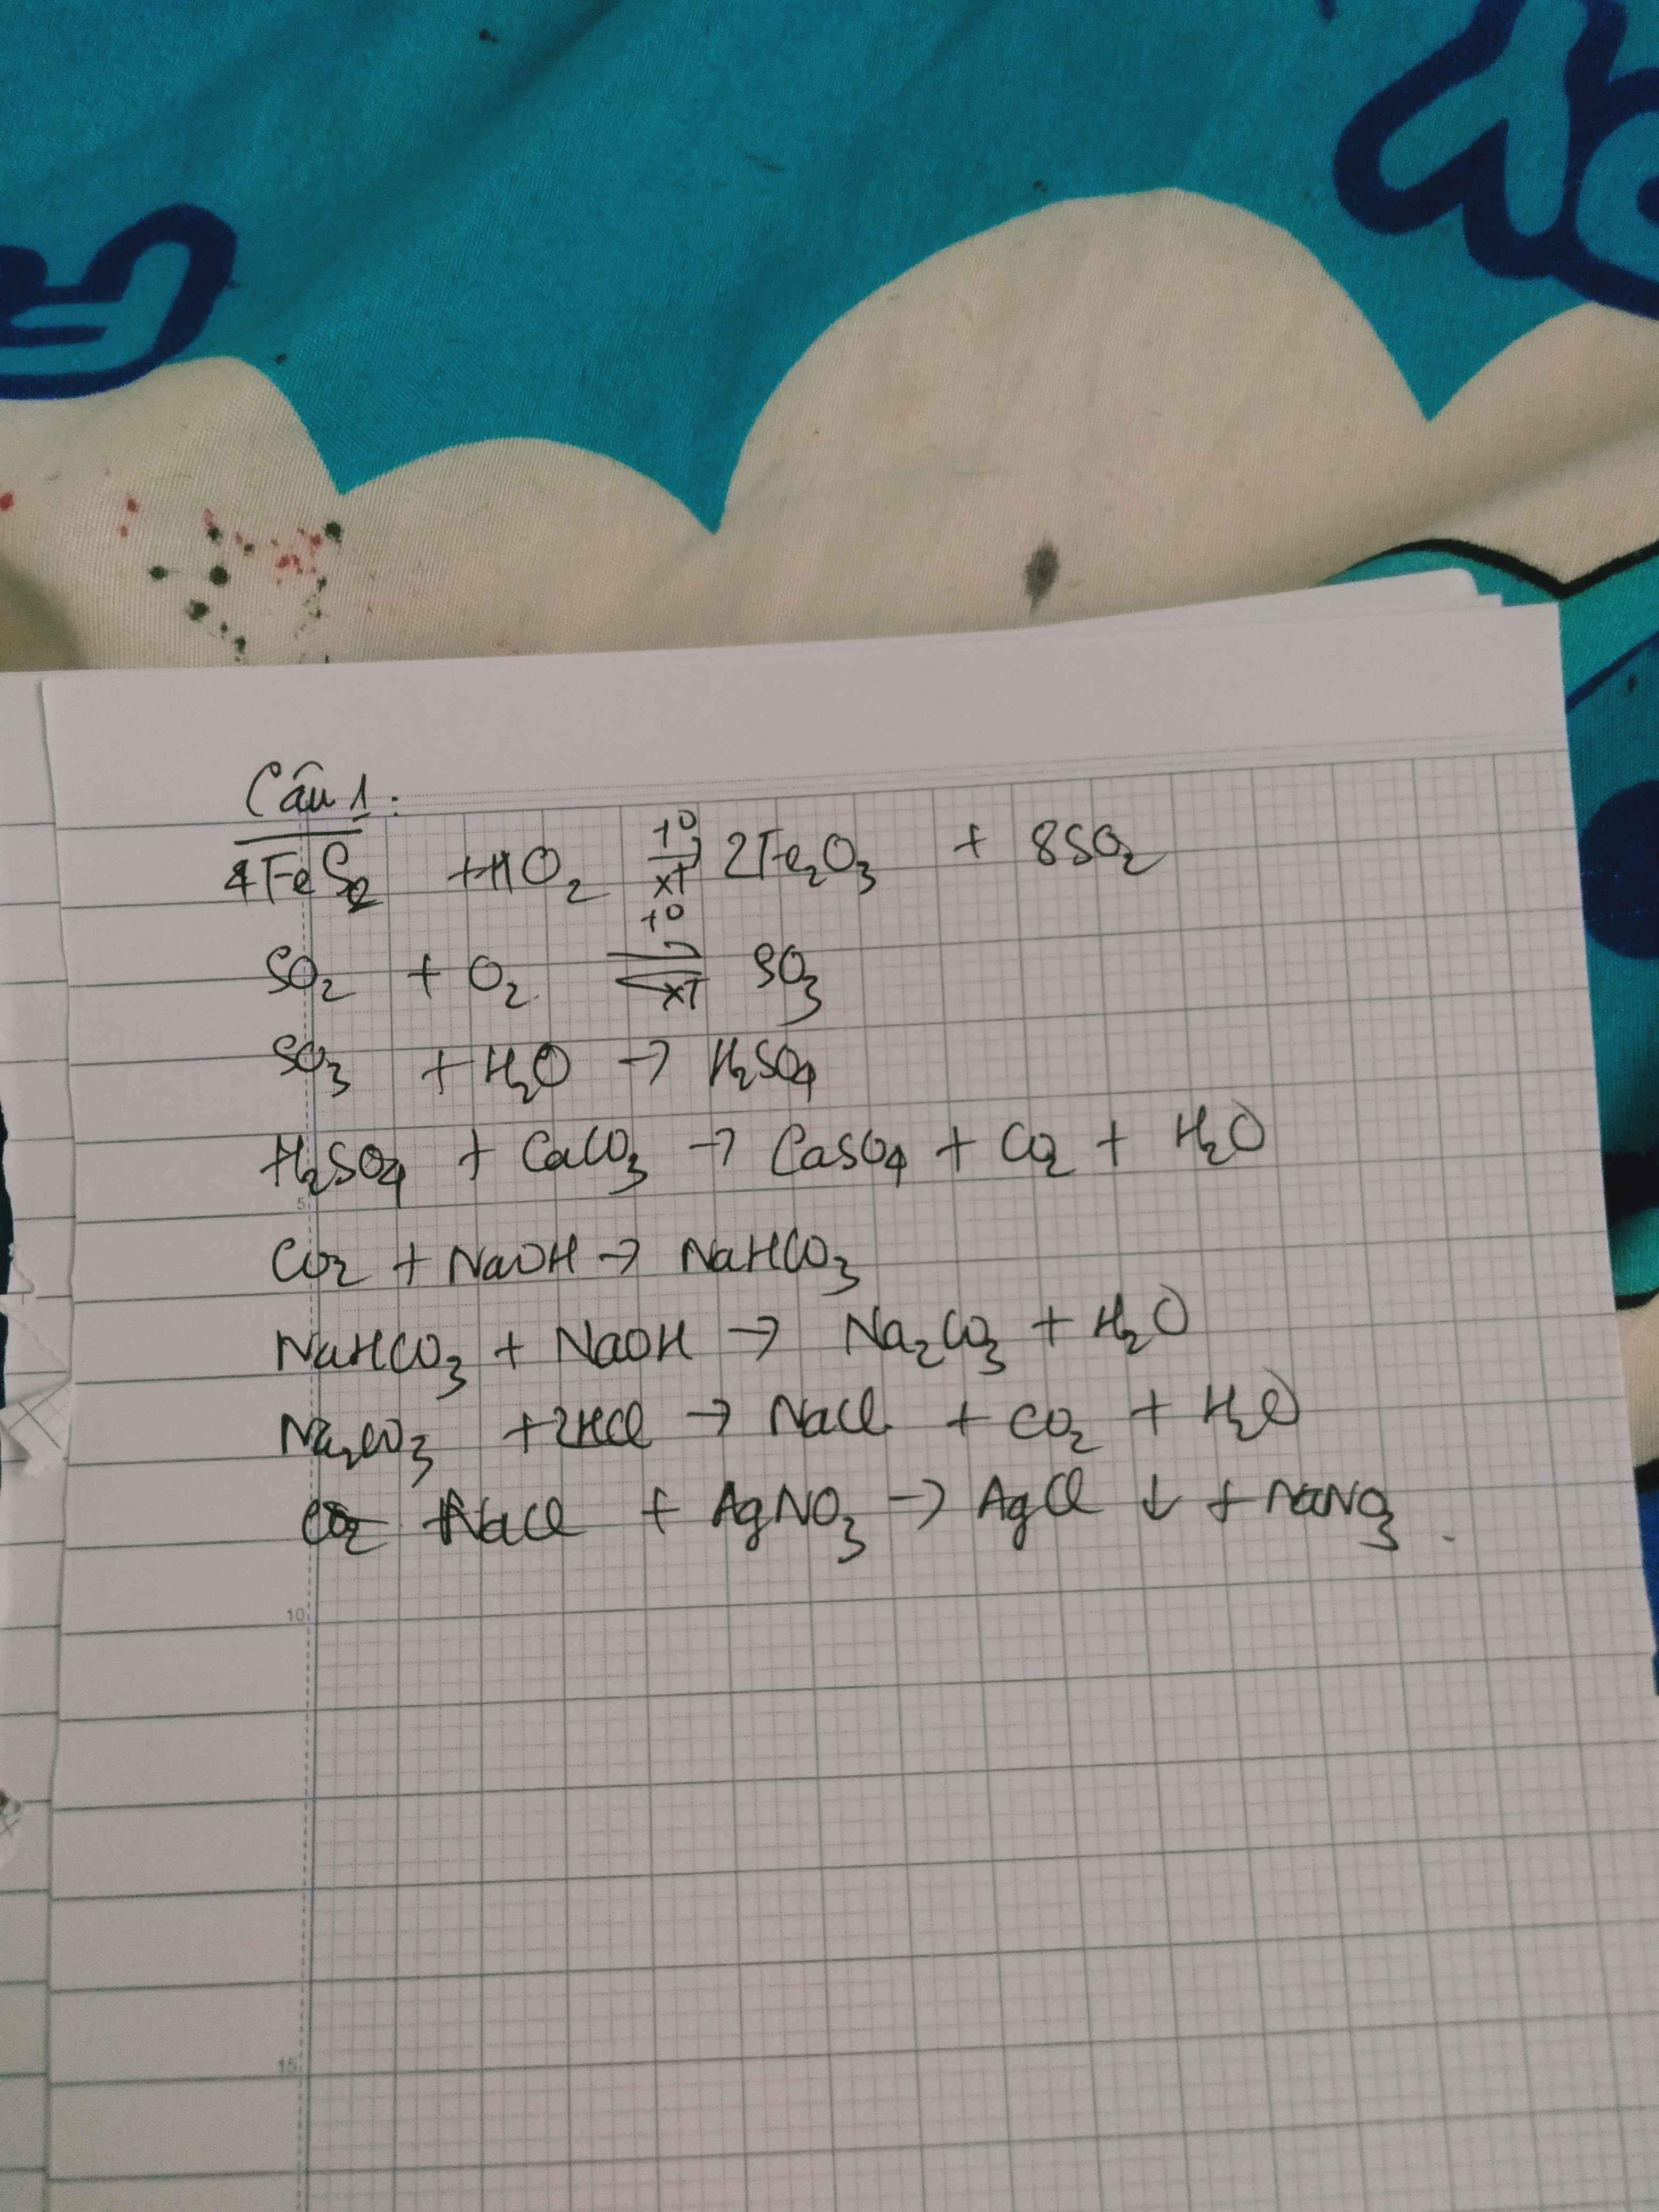 Câu 1:
4FeS2 + 11O2 t° → xt 2Fe2O3 + 8SO2
SO2 + O2 t° ⇌ xt SO3
SO3 + H2O → H2SO4
H2SO4 + CaCO3 → CaSO4 + CO2 + H2O
5
CO2 + NaOH → NaHCO3
NaHCO3 + NaOH → Na2CO3 + H2O
Na2CO3 + 2HCl → NaCl + CO2 + H2O
CO2 + NaCl + AgNO3 → AgCl ↓ + NaNO3.
10
15